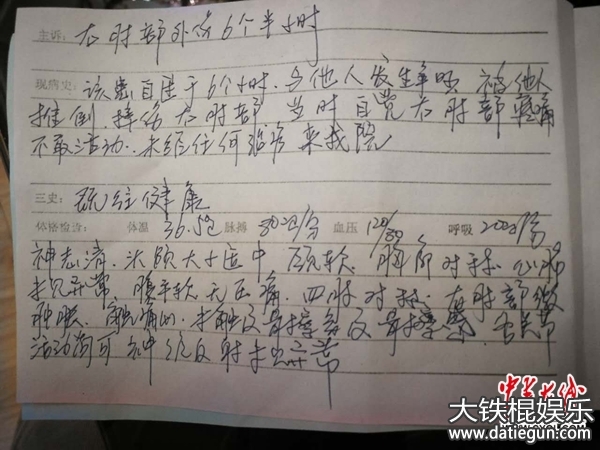 主诉: 右肘部外伤6个半小时
现病史: 该患自述于6个小时前与他人发生争吵 被他人
推倒,摔伤右肘部 当时自觉右肘部疼痛
不敢活动.未经任何治疗 来我院
三史: 既往健康
体格检查: 体温 36.5℃ 脉搏 80次/分 血压 120/80 呼吸 20次/分
神志清.头颅大小适中 颈软.胸廓对称.心肺
未见异常.腹平软 无压痛.四肢对称.右肘部
肿胀.触痛 未触及骨擦感及骨擦音.
活动尚可 神经反射未见异常
大铁棍娱乐
www.datiegun.com